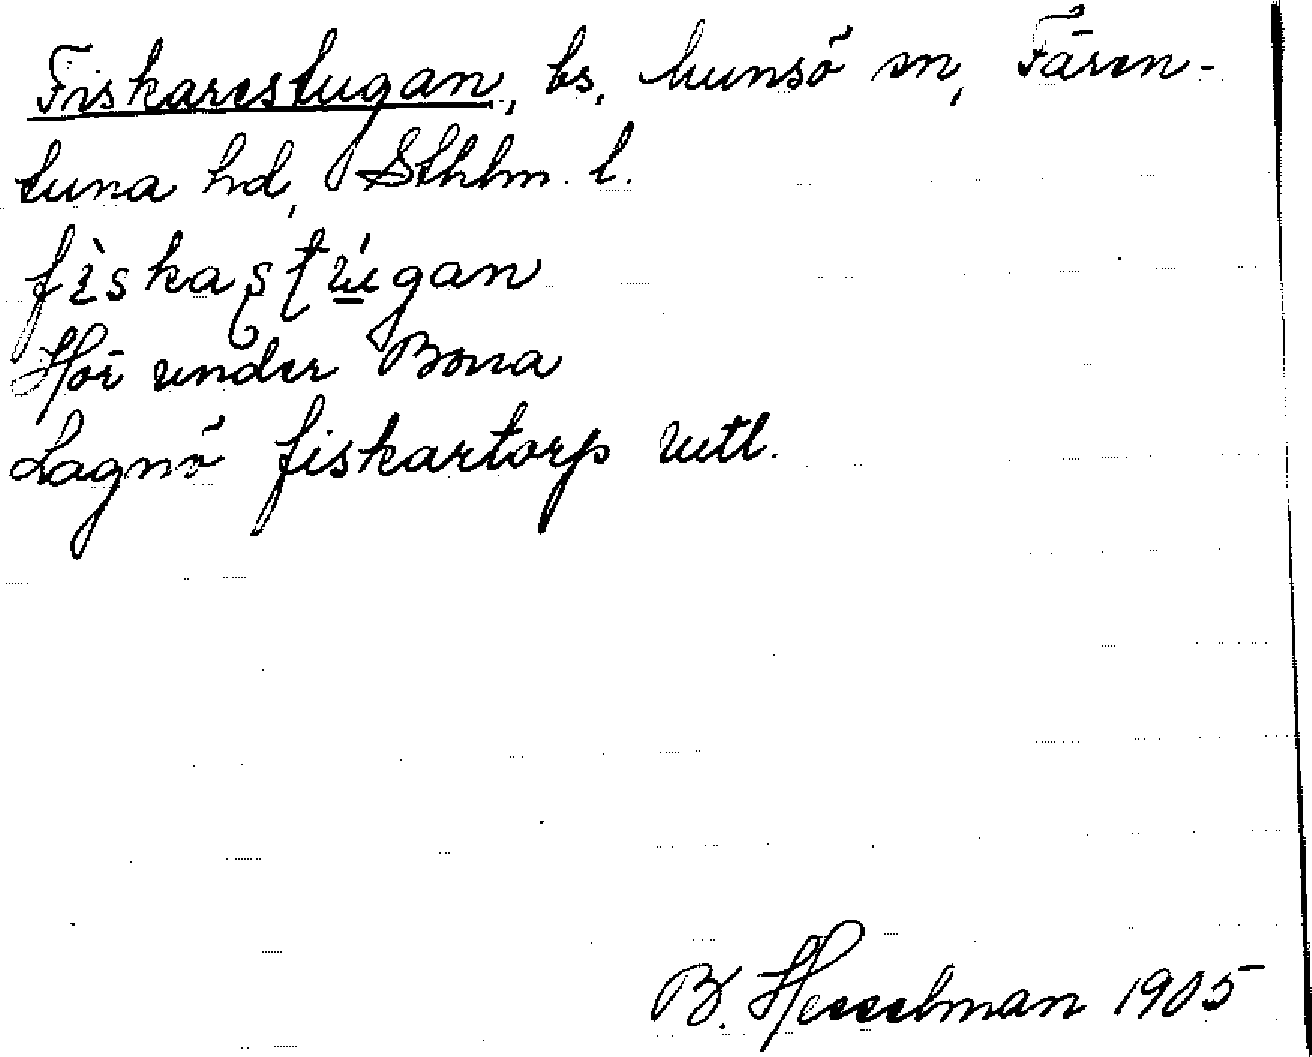 Fiskarestugan, bs, Munsö sn, Fären-
tuna hd, Sthlm. l.
fìskaștúgan
Hör under Bona
Lagnö fiskartorp utl.
B. Hesselman 1905